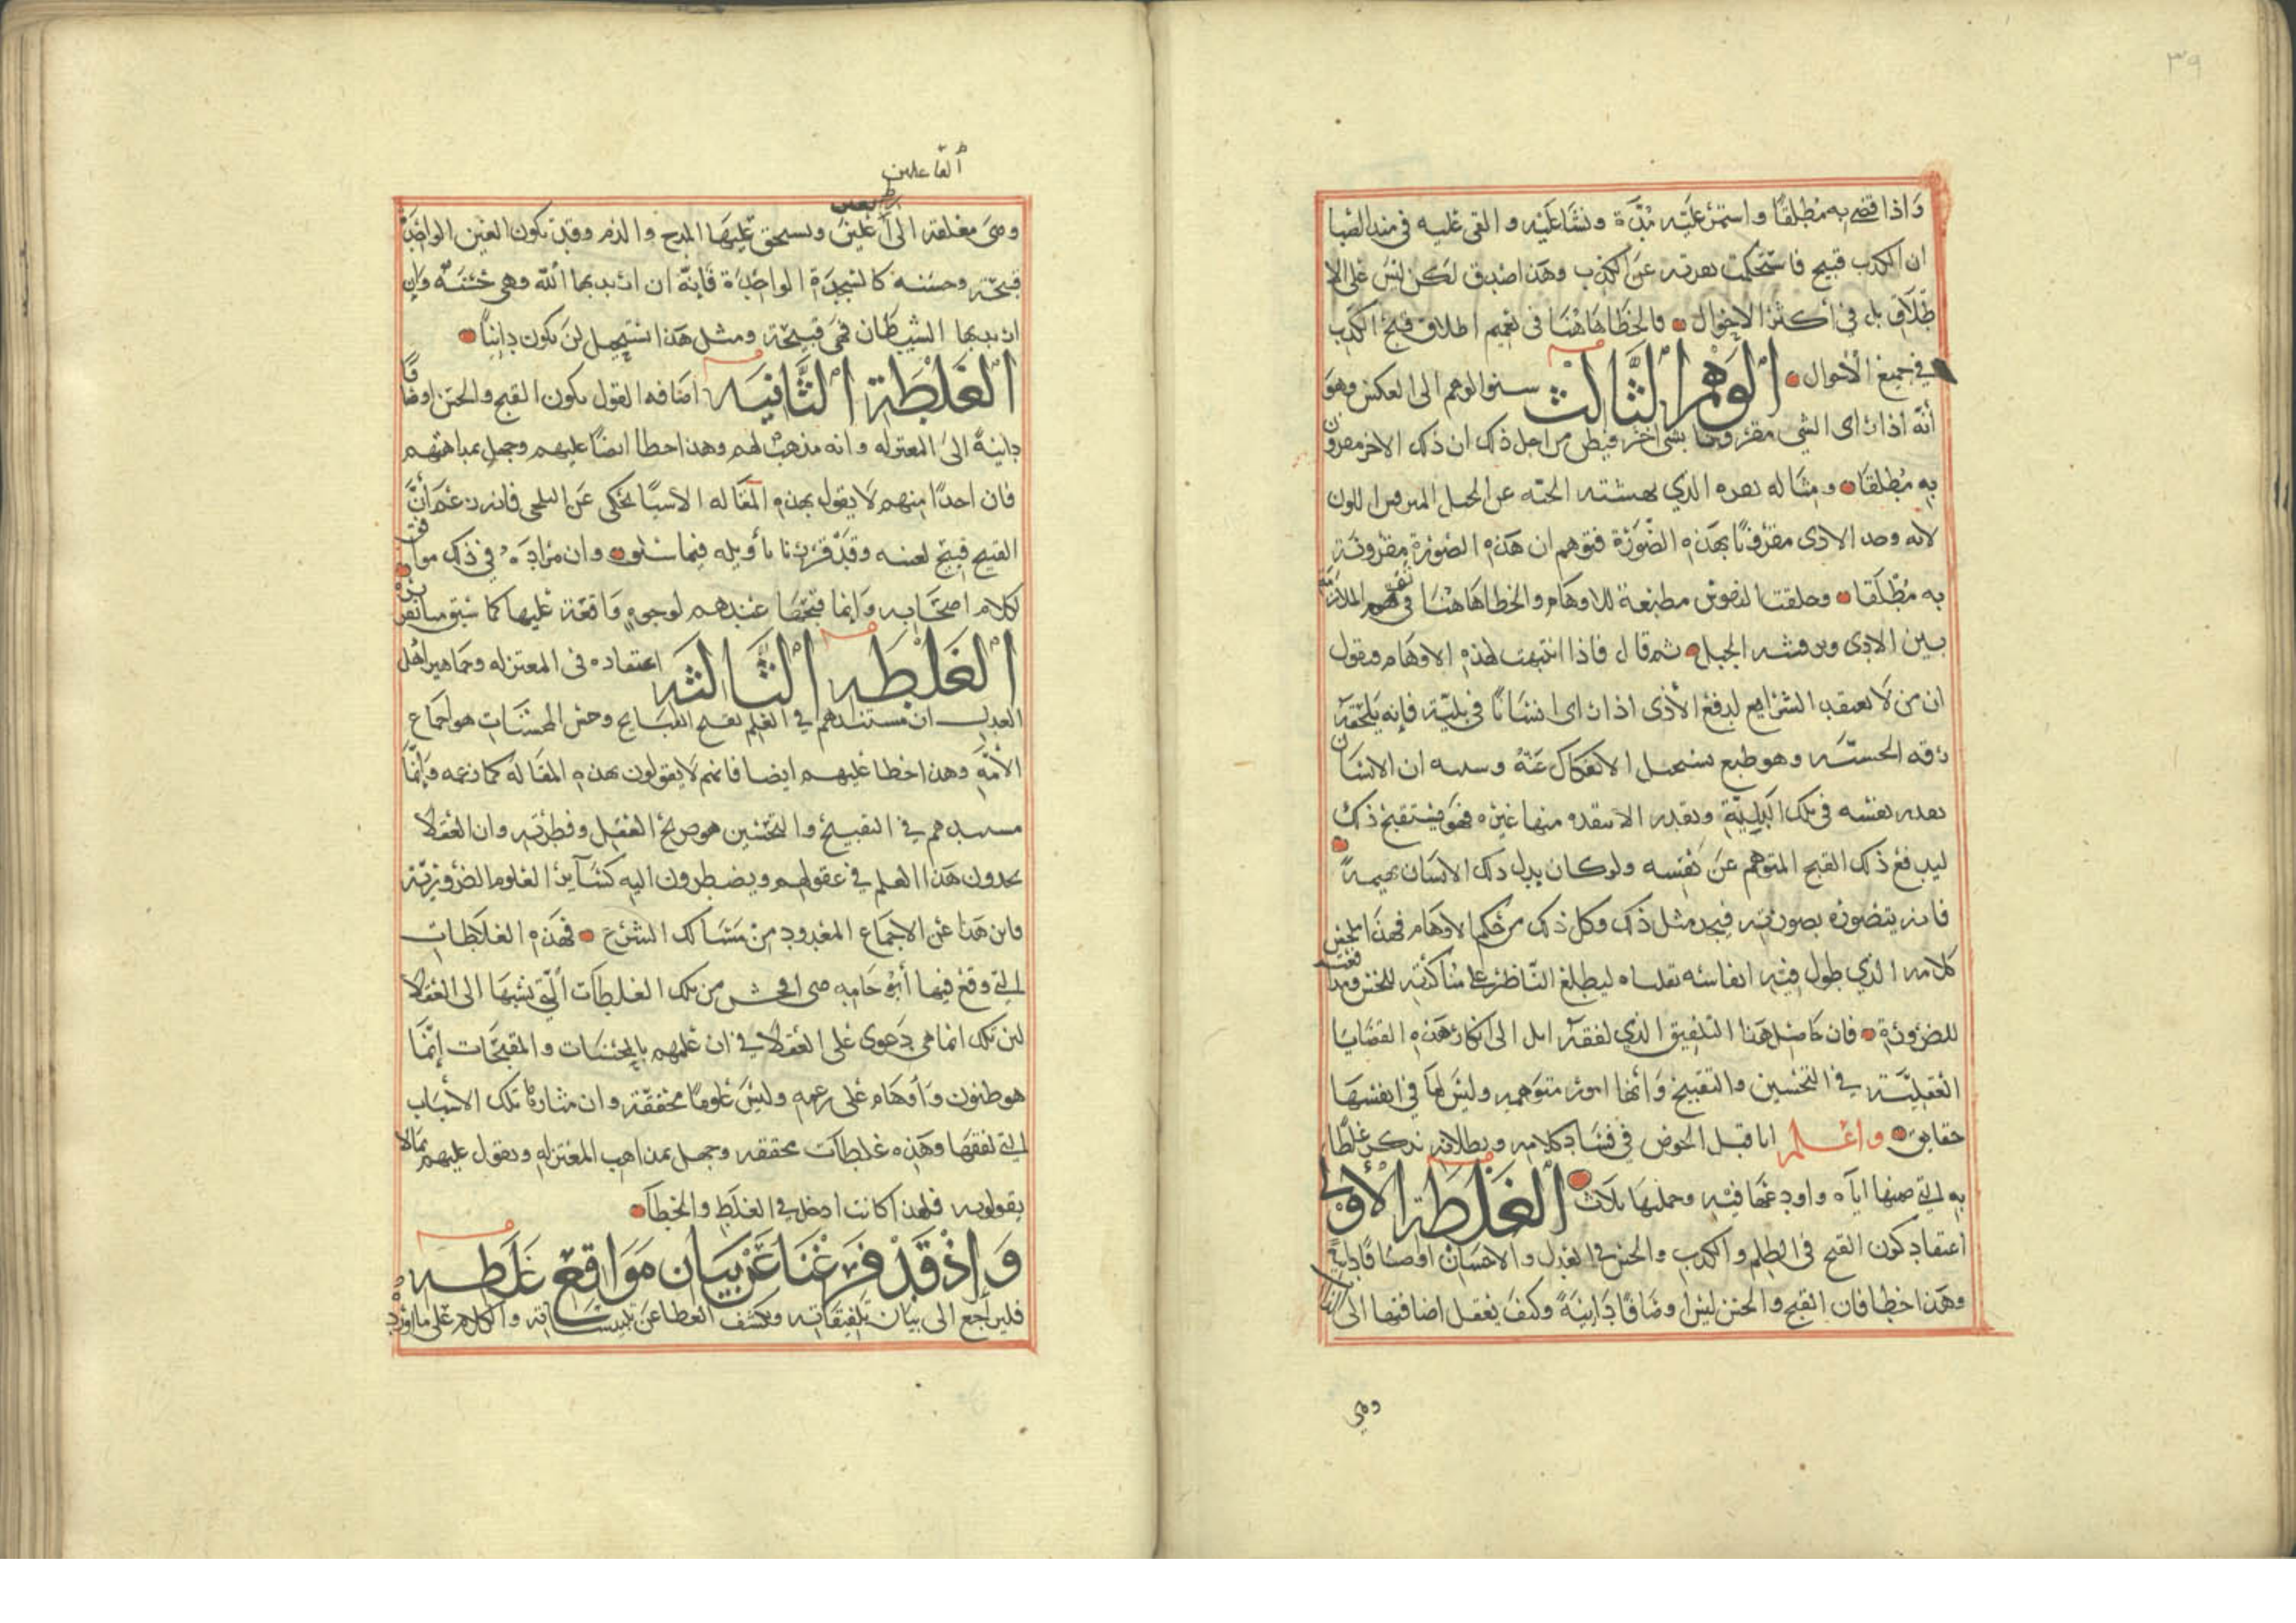 ٣٩
وَاذا قضى به مُطلقًا واستمرّ عليه مُدّة ونشا عليه والقى عليه في مبدا الصبا
ان الكذب قبيح فاستحكمت نفرته عن الكذب وهذا صدق لكن ليس على الا
طلاق بل في أكثر الاحوال فالخطا هاهنا في تعميم اطلاق قبح الكذب
في جميع الأحوال الوهم الثالث سبق الوهم الى العكس وهو
أنّه اذا رأى الشي مقرونا بشي آخر فيظن من اجل ذلك ان ذلك الاخر مقرون
به مُطلقًا ومثاله نفرة الذي نهشته الحيّه عن الحبل المبرقش اللون
لانه وجد الاذى مقرونًا بهذه الصّورة فتوهم ان هذه الصورة مقرونة
به مُطلقا وخلقت النفوس مطيعة للاوهام والخطا هاهنا في الملازمة
بين الاذى وبرقشه الحبل ثم قال فاذا انتبهت لهذه الاوهام فيقول
ان من لا يعتقد الشرايع لدفع الأذى اذا رأى انسانًا في بليّة فإنه يلحقه
رقه الجنسيّه وهو طبع يستحيل الانفكاك عنهُ وسببه ان الانسان
يقدر نفسه في تلك البلِيّة ويقدر الا ينقذه منها غيره فهو يستقبح ذلك
ليدفع ذلك القبح المتوهم عن نفسه ولو كان بدل ذلك الانسان بهيمةً
فانه يتصوره بصورته فيجد مثل ذلك وكل ذلك من حكم الاوهام فهذا ملخص
كلامه الذي طول فيه انفاسه نقلناه ليطلع النّاظر على مناكرته للحس ودفعه
للضرورة فان حاصل هذا التلفيق الذي لفقه آيل الى انكار هذه القضايا
العقليّة في التحسين والتقبيح وَأنها امور متوَهمة وليس لها في انفسها
حقايق واعلم انا قبل الخوض في فساد كلامه وبطلانه نذكر غلطا
به التي ضمنها اياه واودعها فيه وجملتها ثلاث الغلطة الأولى
اعتقاد كون القبح في الظلم والكذب والحسن في العدل والاحسان اوصافًا ذاتيةً
وهذا خطا فان القبح والحسن ليسا اوصافًا ذاتيةً وكيف يعقل اضافتهما الى الذات
وهي
الفاعلين
وهي معلقة الى ويستحق عليها المدح والذم وقد تكون العين الواحدة
قبيحة وحسنة كالسجدة الواحدة فإنّه ان اريد بها اللّه وهي حسنة وإن
اريد بها الشيطان فهي قبيحة ومثل هذا يستحيل لن يكون ذاتيًا
الغلطة الثانية اضافه القول بكون القبح والحسن اوصافًا
ذاتيةً الى المعتزله وانه مذهب لهم وهذا خطا ايضًا عليهم وجهل بمذاهبهم
فان احدًا منهم لا يقول بهذه المقاله الا شيئًا يحكى عن البلخي فانه زعم أنّ
القبيح قبيح لعينه وقد قررنا تأويله فيما سلف وان مراده في ذلك موافق
لكلام اصحابه وإنما قبحها عندهم لوجوه واقعة عليها كما سبق تقريره
الغلطه الثالثه اعتقاده في المعتزله وجماهير اهل
العدل ان مستندهم في العلم بقبح القبايح وحسن المحسنات هو اجماع
الأمّة وهذا خطا عليهم ايضا فانهم لا يقولون بهذه المقاله كما زعمه وإنّما
مستندهم في التقبيح والتحسين هو صريح العقل وفطرته وان العقلا
يجدون هذا العلم في عقولهم ويضطرون اليه كسآير العلوم الضروريّة
واين هذا عن الاجماع المعدود من مسالك الشرع فهذه الغلطات
التي وقع فيها أبو حامد هي افحش من تلك الغلطات الّتي نسبها الى العقلا
لان تلك انما هي دعوى على العقلا في ان علمهم بالمحسنات والمقبحات إنّما
هو ظنون وأوهام على زعمه وليس علومًا محققة وان مثارها تلك الأسباب
التي لفقها وهذه غلطات محققه وجهل بمذاهب المعتزله ويقول عليهم بما لا
يقولونه فلهذا كانت ادخل في الغلط والخطآ
وَإذْ قدْ فرغنا عن بيان مواقع غلطه
فلنرجع الى بيان تلفيقاته وكشف الغطا عن تلبيساته والكلام على ما اورده